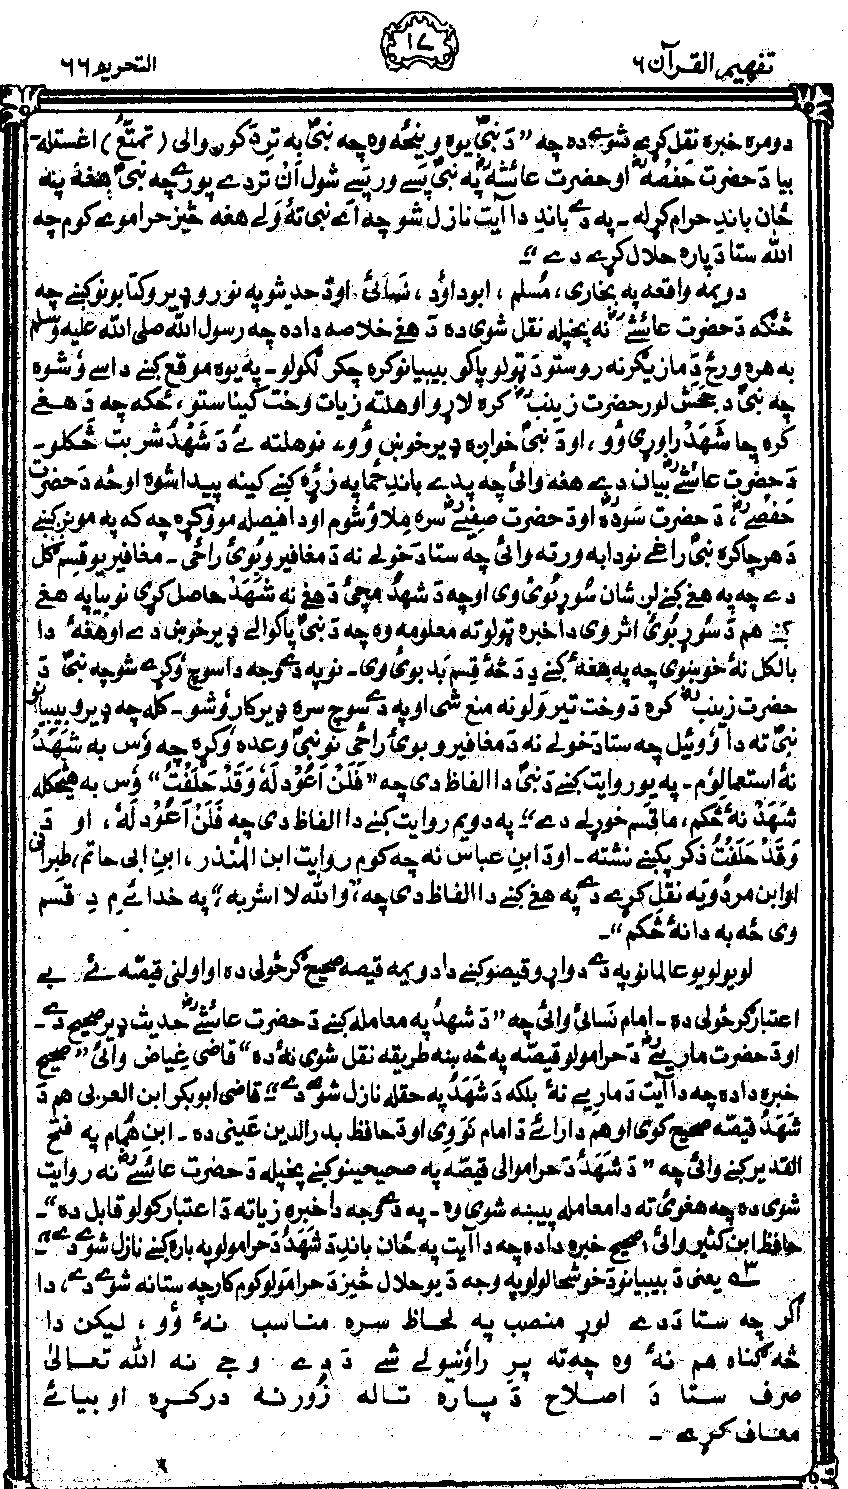 تفهیم القرآن ۶
۱۷
التحریم ۶۶
دومره خبره نقل کړے شوے ده چه ”دَ نبیؐ یوه وینځه وه چه نبیؐ په تردَ کون والی (تمتّع) اغستله۔
بیا دَ حضرت حَفصهؓ او حضرت عائشهؓ په نبیؐ پسے ورپسے شول اَن تردے پورے چه نبیؐ هغه په
ځان باندِ حرام کړله۔ په دے باندِ دا آیت نازل شو چه اَے نبی تۀ وَلے هغه څیز حراموے کوم چه
الله ستا دَ پاره حلال کړے دے“۔
دویمه واقعه په بخاری، مُسلم، ابوداوُد، نَسائیُ او دَ حدیثو په نورو ډیرو کتابونو کښے چه
څنګه دَ حضرت عائشےؓ نه پخپله نقل شوی ده دَ هغے خلاصه داده چه رسول الله صلی الله علیه وسلم
به هره ورځ دَ مازیګر نه روستو دَ ټولو پاکو بیبیانو کره چکر لګولو۔ په یوه موقع کښے داسے وُشوه
چه نبیؐ دِ جحش لور حضرت زینبؓ کره لاړو او هلته زیات وخت کیناستو، ځکه چه دَ هغے
کره چا شَهَدْ راوړی وُو، او دَ نبیؐ خواږه ډیر خوښ وُو، نو هلته ئے دَ شَهْدُ شربت څکلو۔
دَ حضرت عائشےؓ بیان دے هغه وائی چه پدے باندِ ځما په زړه کښے کینه پیدا شوه او څه دَ حضرت
حَفصےؓ، دَ حضرت سَودهؓ او دَ حضرت صفیےؓ سره مِلاؤ شوم او دا فیصله مو وکړه چه که په مونږ کښے
دَ هر چا کره نبیؐ راځی نو دا به ورته وائی چه ستا دَ خولے نه دَ مغافیرو بُوئی راځی۔ مغافیر یو قِسم ګُل
دے چه په هغے کښے لږ شان سُوړ بُوئی وی او چه دَ شهدُ مچئ دَ هغے نه شَهْدُ حاصل کړی نو بیا په هغے
کښے هم دَ سُوړ بُوئی اثر وی دا خبره ټولو ته معلومه وه چه دَ نبیؐ پاکوالے ډیر خوښ دے او هغهؐ دا
بالکل نۀ خوښوی چه په هغهؐ کښے دِ دَ څۀ قِسم بَد بوئی وی۔ نو په دے وجه دا سوچ وُکړے شو چه نبیؐ دَ
حضرت زینبؓ کره دَ وخت تیروَلو نه منع شی او په دے سوچ سره ډیر کار وُشو۔ کله چه ډیرو بیبیانو
نبیؐ ته دا وُوئیل چه ستا دَ خولے نه دَ مغافیرو بوئی راځی نو نبیؐ وعده وُکړه چه وُس به شَهَدُ
نۀ استعمالوُم۔ په یو روایت کښے دَ نبیؐ دا الفاظ دی چه ”فَلَنْ اَعُوْدَ لَهٗ وَقَدْ حَلَفْتُ“ وُس به هیڅکله
شَهَدْ نۀ څکم، ما قَسم خوړلے دے“۔ په دویم روایت کښے دا الفاظ دی چه فَلَنْ اَعُوْدَ لَهٗ، او دَ
وَقَدْ حَلَفْتُ ذکر پکښے نشته۔ او دَ ابن عباس نه چه کوم روایت ابن المُنذر، ابن ابی حاتم، طبرانی
او ابن مردُویه نقل کړے دے په هغے کښے دا الفاظ دی چه ”والله لا اشربه“، په خدائے مِ دِ قَسم
وی څه به دا نۀ څکم“۔
لویو لویو عالمانو په دے دواړو قیصو کښے دا دویمه قیصه صحیح ګرځولی ده او اولنی قیصّه ئے بے
اعتبار ګرځولی ده۔ امام نَسائیُ وائی چه ”دَ شهدُ په معامله کښے دَ حضرت عائشےؓ حدیث ډیر صحیح دے۔
او دَ حضرت ماریےؓ دَ حرامولو قیصّه په څه ښه طریقه نقل شوی نۀ ده“ قاضی عِیاض وائی ”صحیح
خبره داده چه دا آیت دَ ماریے نۀ بلکه دَ شَهَدُ په حقله نازل شوے دے“۔ قاضی ابوبکر ابن العربی هم دَ
شَهَدُ قیصّه صحیح ګوی او هم دا رائے دَ امام نَوَوِی او دَ حافظ بدرالدین عَینی ده۔ ابن هُمام په فتح
القدیر کښے وائی چه ”دَ شَهَدُ دَ حراموالی قیصّه په صحیحینو کښے پخپله دَ حضرت عائشےؓ نه روایت
شوی ده چه هغوئی ته دا معامله پیښه شوی وه۔ په دے وجه دا خبره زیاته دَ اعتبار کولو قابل ده“۔
حافظ ابن کثیر وائی ”صحیح خبره داده چه دا آیت په ځان باندِ دَ شَهَدُ دَ حرامولو په باره کښے نازل شوے دے“۔
۳ یعنی دَ بیبیانو دَ خوشحالولو په وجه دَ یو حلال څیز دَ حرامولو کوم کار چه ستا نه شوے دے، دا
اګر چه ستا دَ دے لوړ منصب په لحاظ سره مناسب نۀ وُو، لیکن دا
څه ګناه هم نۀ وه چه ته پرِ راوُنیولے شے دَ دے وجے نه الله تعالیٰ
صرف ستا دَ اصلاح دَ پاره تاله زُورنه درکړه او بیائے
معاف کړے۔